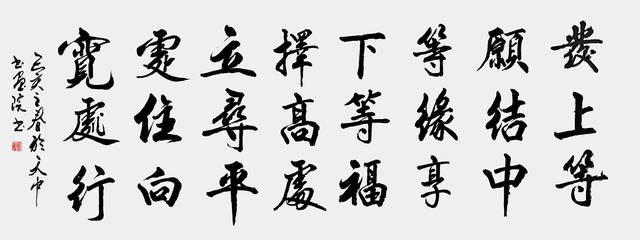 發上等
願結中
等緣享
下等福
擇高處
立尋平
處住向
寬處行
己亥之春於天中
書畫院書